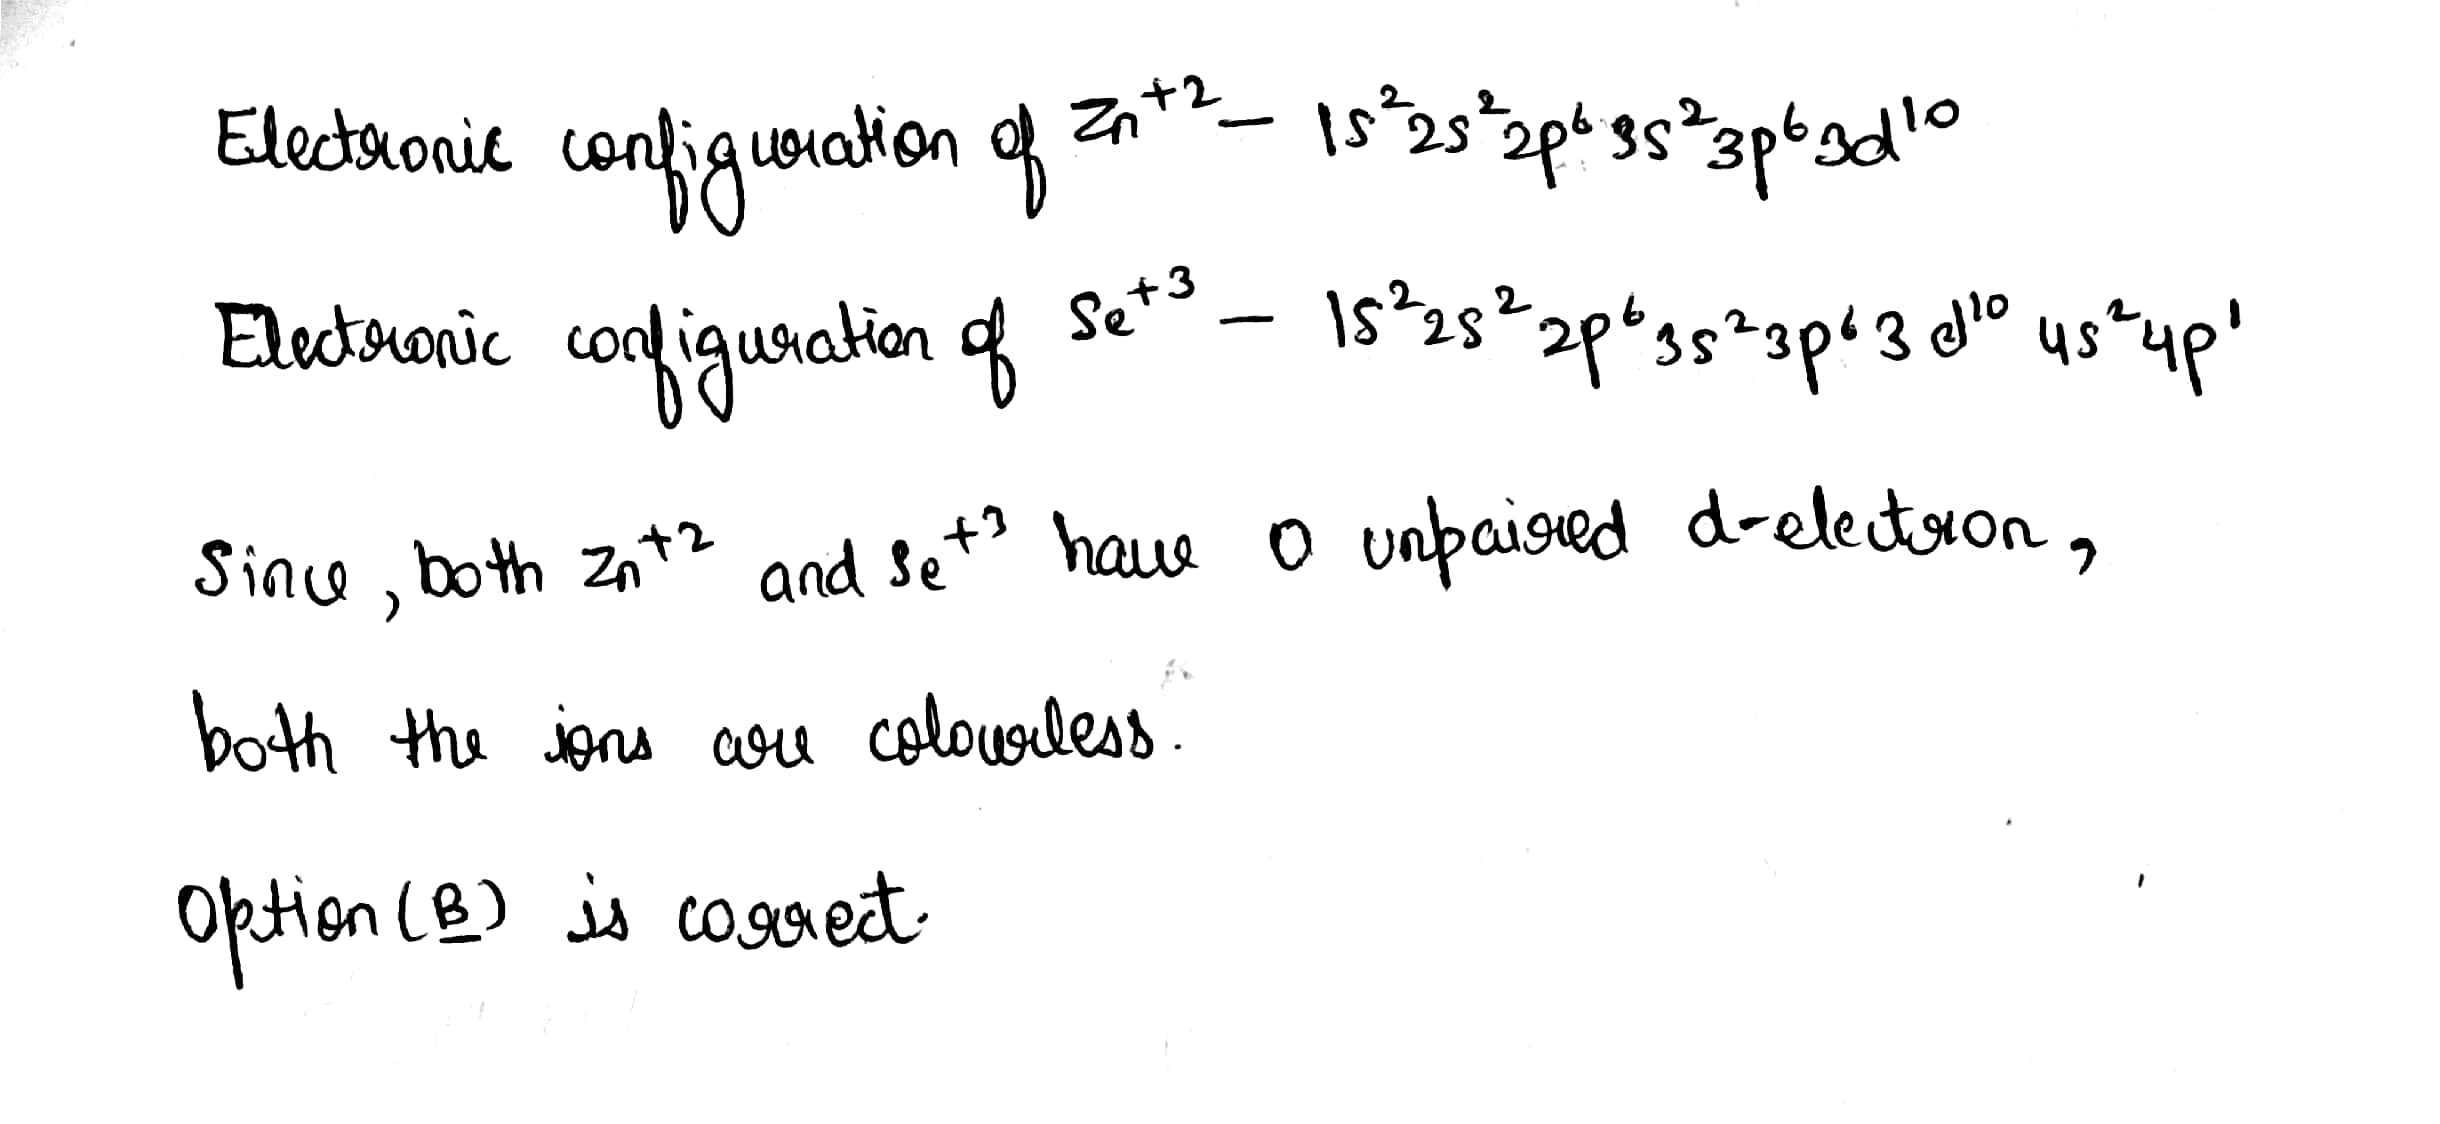 Electronic configuration of Zn⁺² – 1s²2s²2p⁶3s²3p⁶3d¹⁰
Electronic configuration of Se⁺³ – 1s²2s²2p⁶3s²3p⁶3d¹⁰4s²4p¹
Since, both Zn⁺² and Se⁺³ have 0 unpaired d-electron,
both the ions are colourless.
Option (B) is correct.